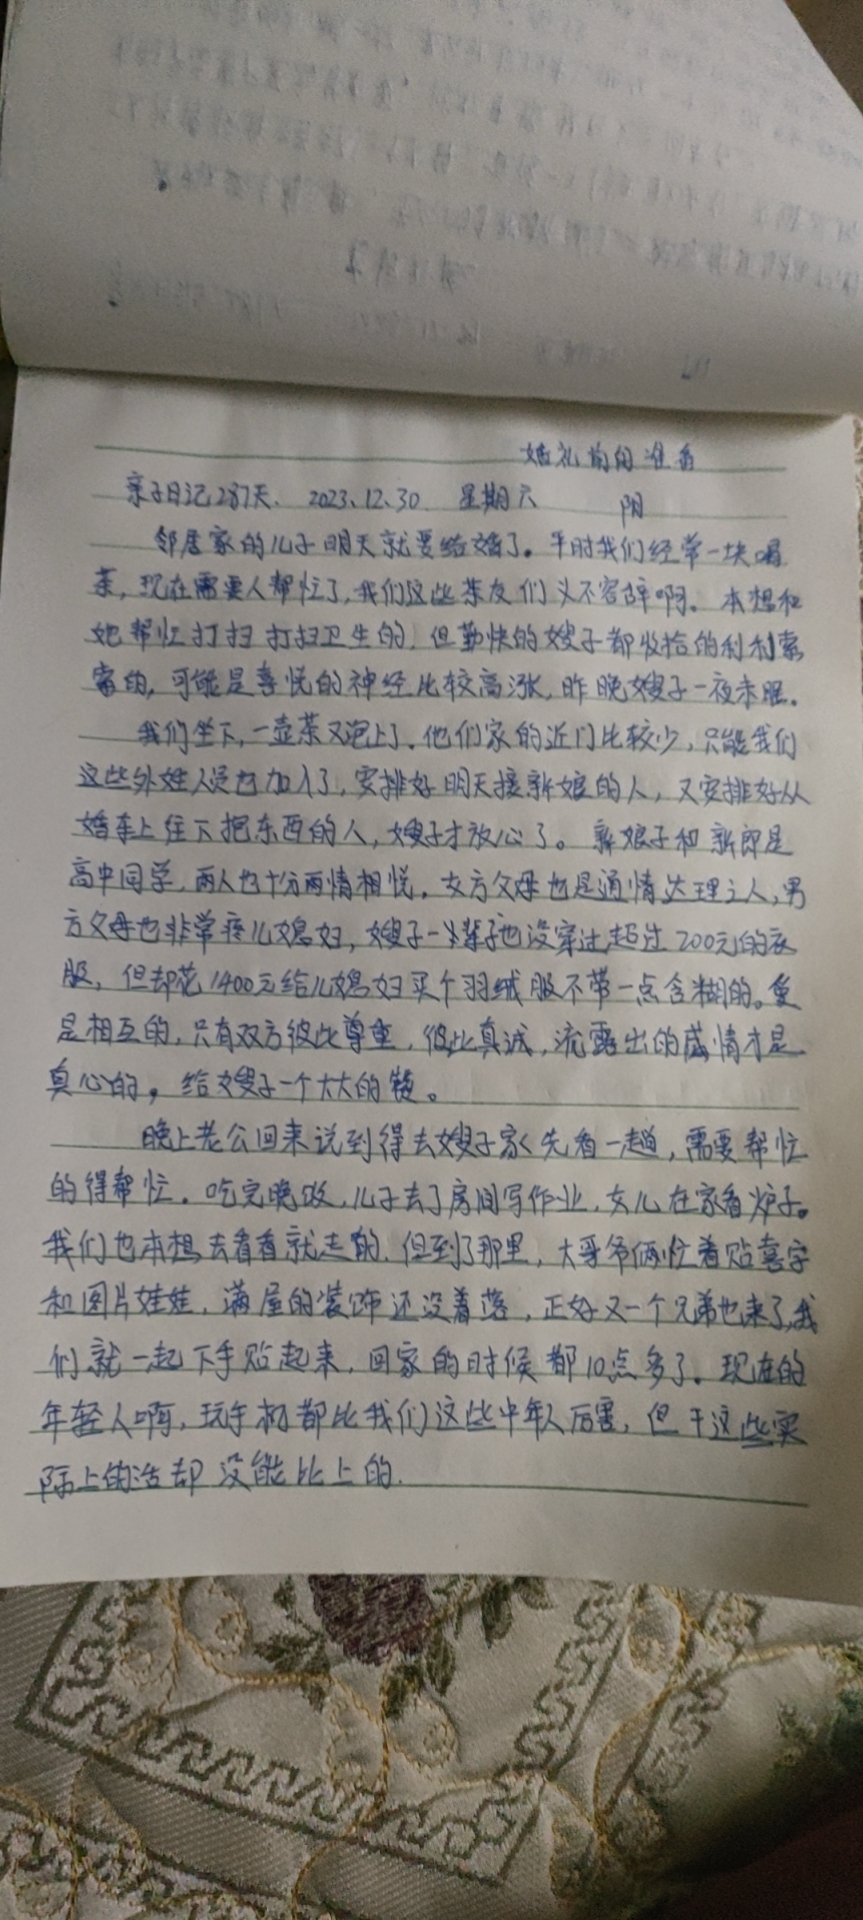 婚礼前的准备
亲子日记287天. 2023.12.30. 星期六 阴
邻居家的儿子明天就要结婚了。平时我们经常一块喝
茶,现在需要人帮忙了,我们这些茶友们义不容辞啊。本想和
她帮忙打扫打扫卫生的,但勤快的嫂子都收拾的利利索
索的,可能是喜悦的神经比较高涨,昨晚嫂子一夜未眠。
我们坐下,一壶茶又泡上了。他们家的近门比较少,只能我们
这些外姓人员也加入了,安排好明天接新娘的人,又安排好从
婚车上往下把东西的人,嫂子才放心了。新娘子和新郎是
高中同学,两人也十分两情相悦。女方父母也是通情达理之人,男
方父母也非常疼儿媳妇,嫂子一辈子也没穿过超过200元的衣
服,但却花1400元给儿媳妇买个羽绒服不带一点含糊的。爱
是相互的,只有双方彼此尊重,彼此真诚,流露出的感情才是
真心的。给嫂子一个大大的赞。
晚上老公回来说到得去嫂子家先看一趟,需要帮忙
的得帮忙。吃完晚饭,儿子去了房间写作业,女儿在家看炉子。
我们也本想去看看就走的,但到了那里,大哥爷俩忙着贴喜字
和图片娃娃,满屋的装饰还没着落,正好又一个兄弟也来了,我
们就一起下手贴起来,回家的时候都10点多了。现在的
年轻人啊,玩手机都比我们这些中年人厉害,但干这些实
际上的活却没能比上的.